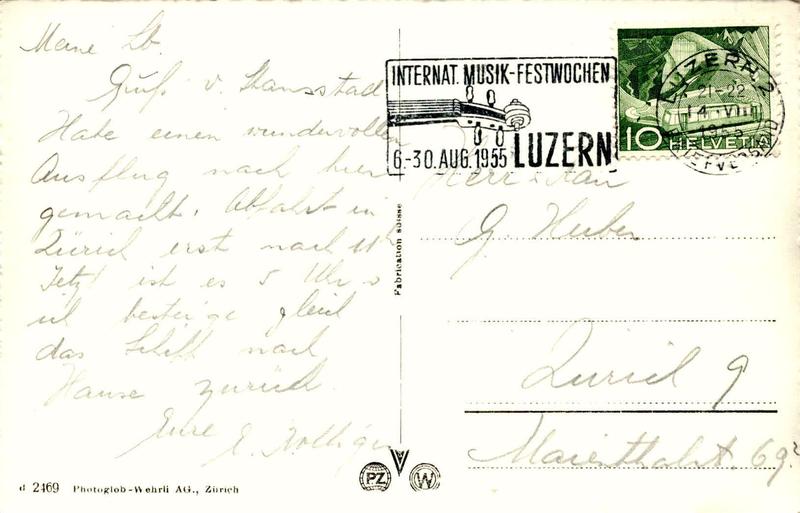 Meine Lb.
Gruß v. Stansstad
Habe einen wundervollen
Ausflug nach hier
gemacht. Abfahrt in
Zürich erst nach 11h
Jetzt ist es 5 Uhr
besteige gleich
das Schiff nach
Hause zurück.
Eure E.
INTERNAT. MUSIK-FESTWOCHEN
6-30. AUG. 1955 LUZERN
LUZERN 2
21-22
14. VIII
1955
BRIEFVERSAND
10 HELVETIA
Herr & Frau
G. Huber
Zürich 9
69
Fabrication suisse
d 2469 Photoglob-Wehrli AG., Zürich
PZ W